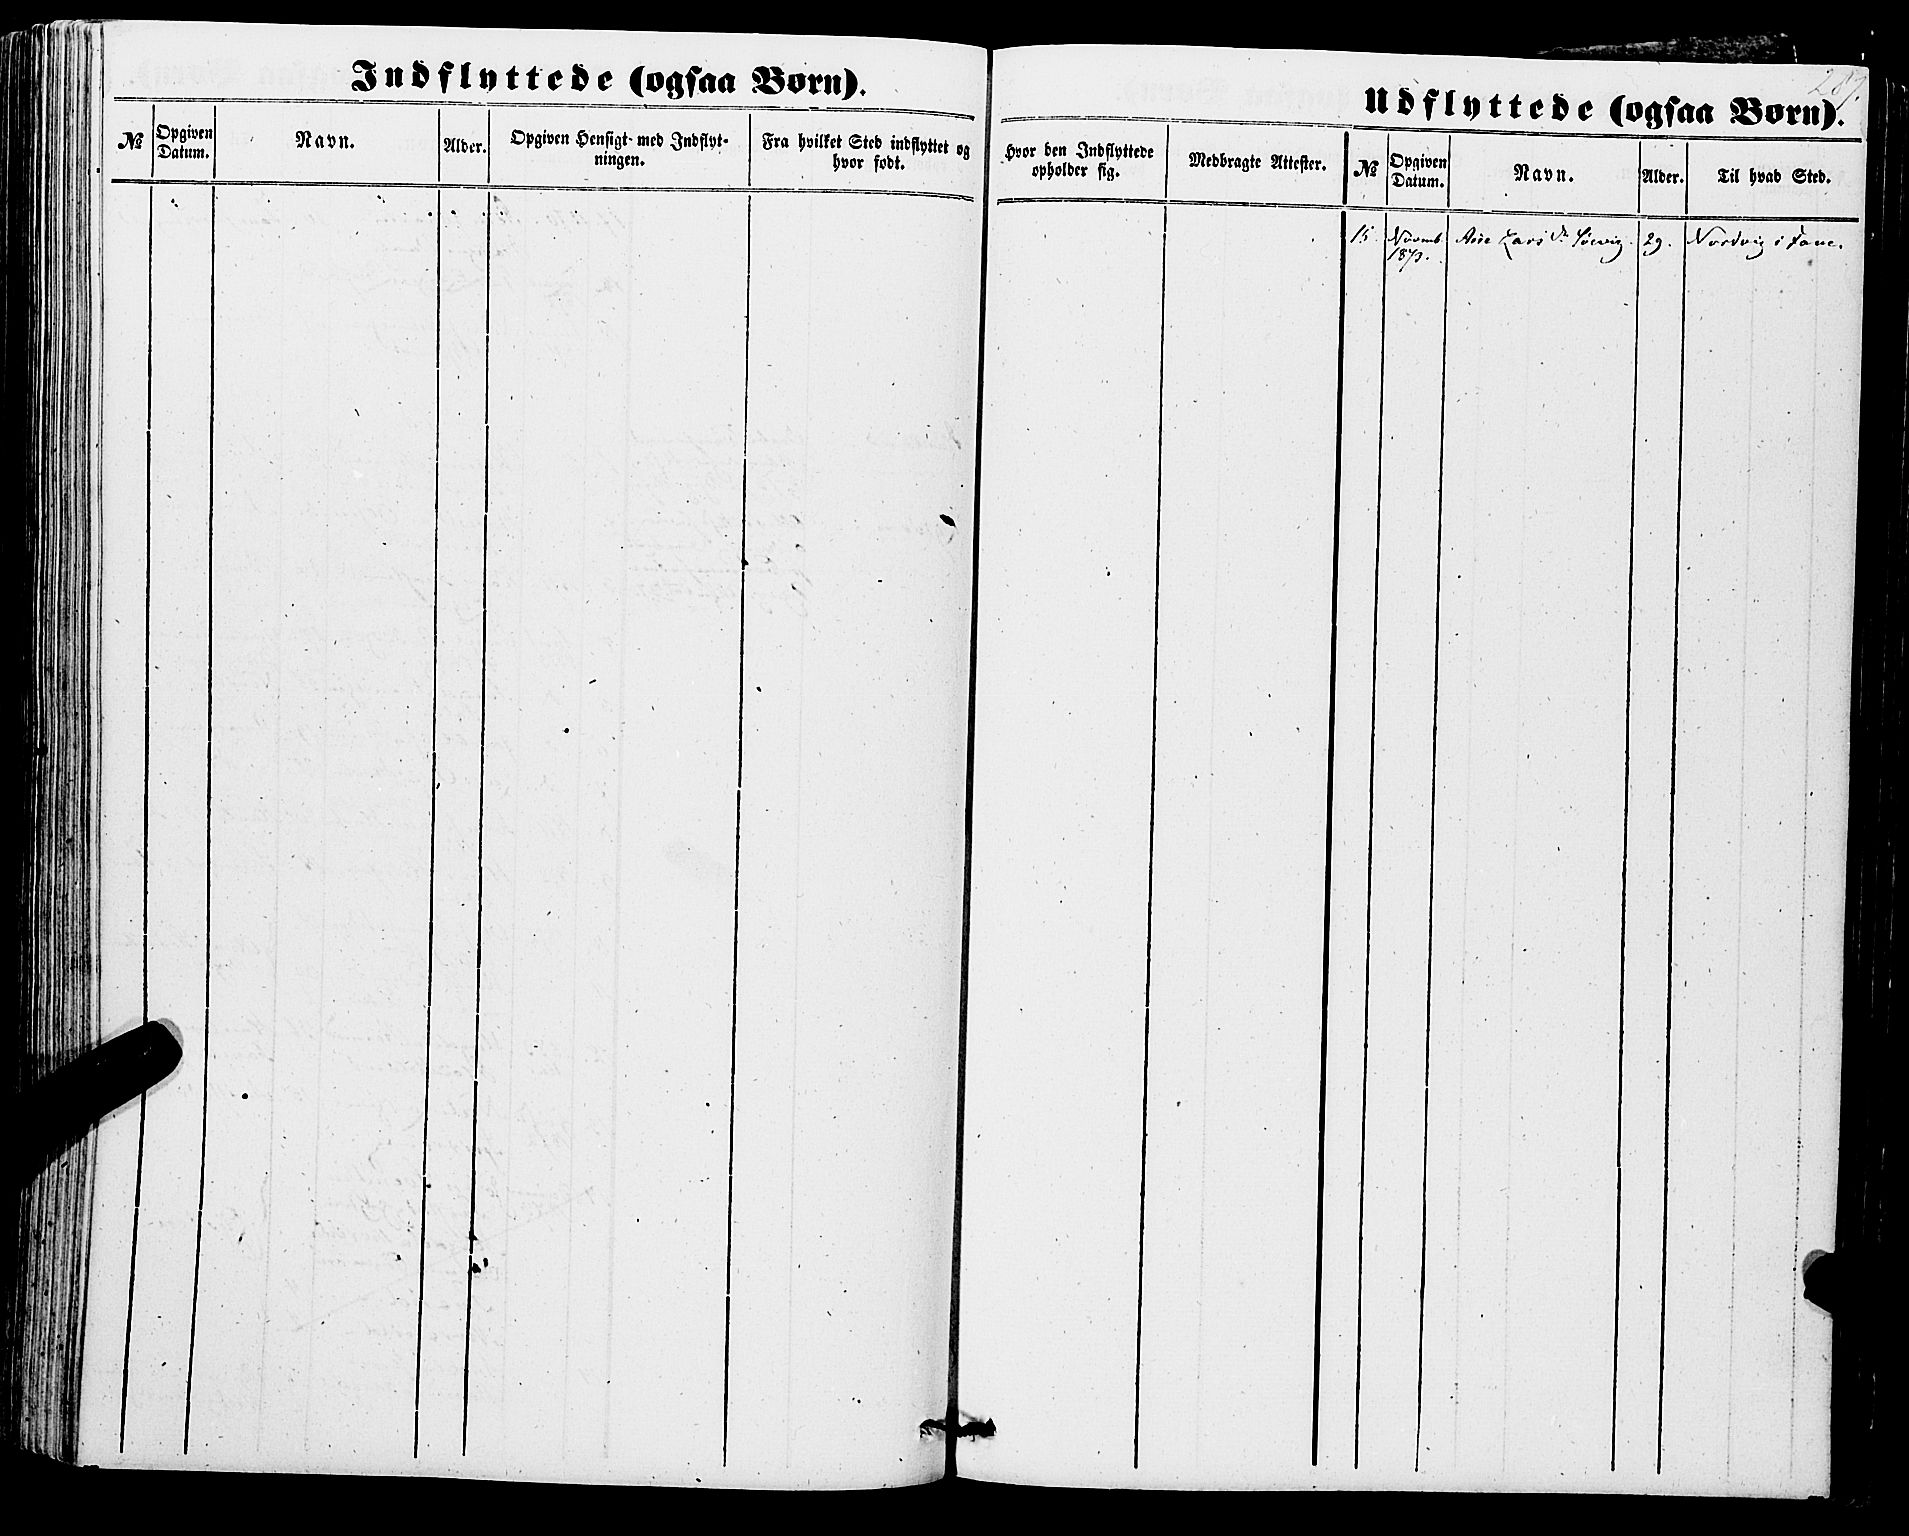 Indflyttede (ogsaa Børn).
№
Opgiven Datum.
Navn.
Alder.
Opgiven Hensigt med Indflyt-
ningen.
Fra hvilket Sted indflyttet og
hvor født.
289.
Udflyttede (ogsaa Børn).
Hvor den Indflyttede
opholder sig.
Medbragte Attester.
№
Opgiven
Datum.
Navn.
Alder.
Til hvad Sted.
15. Novemb. Lars 29. Nordvig i Fane.
1873.